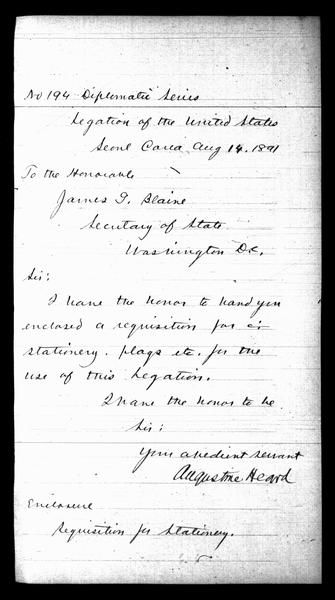 No 194 Diplomatic Series
Legation of the United States
Seoul Corea Aug 14. 1891
To the Honorable
James G. Blaine
Secretary of State
Washington D.C.
Sir:
I have the honor to hand you
enclosed a requisition for
stationery. flags etc. for the
use of this Legation.
I have the honor to be
Sir:
Your obedient servant
Augustine Heard
Enclosure
Requisition for Stationery.